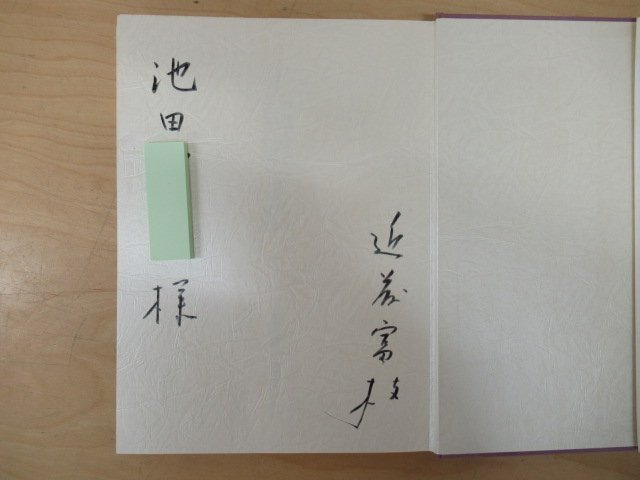 近藤富枝
池田
様